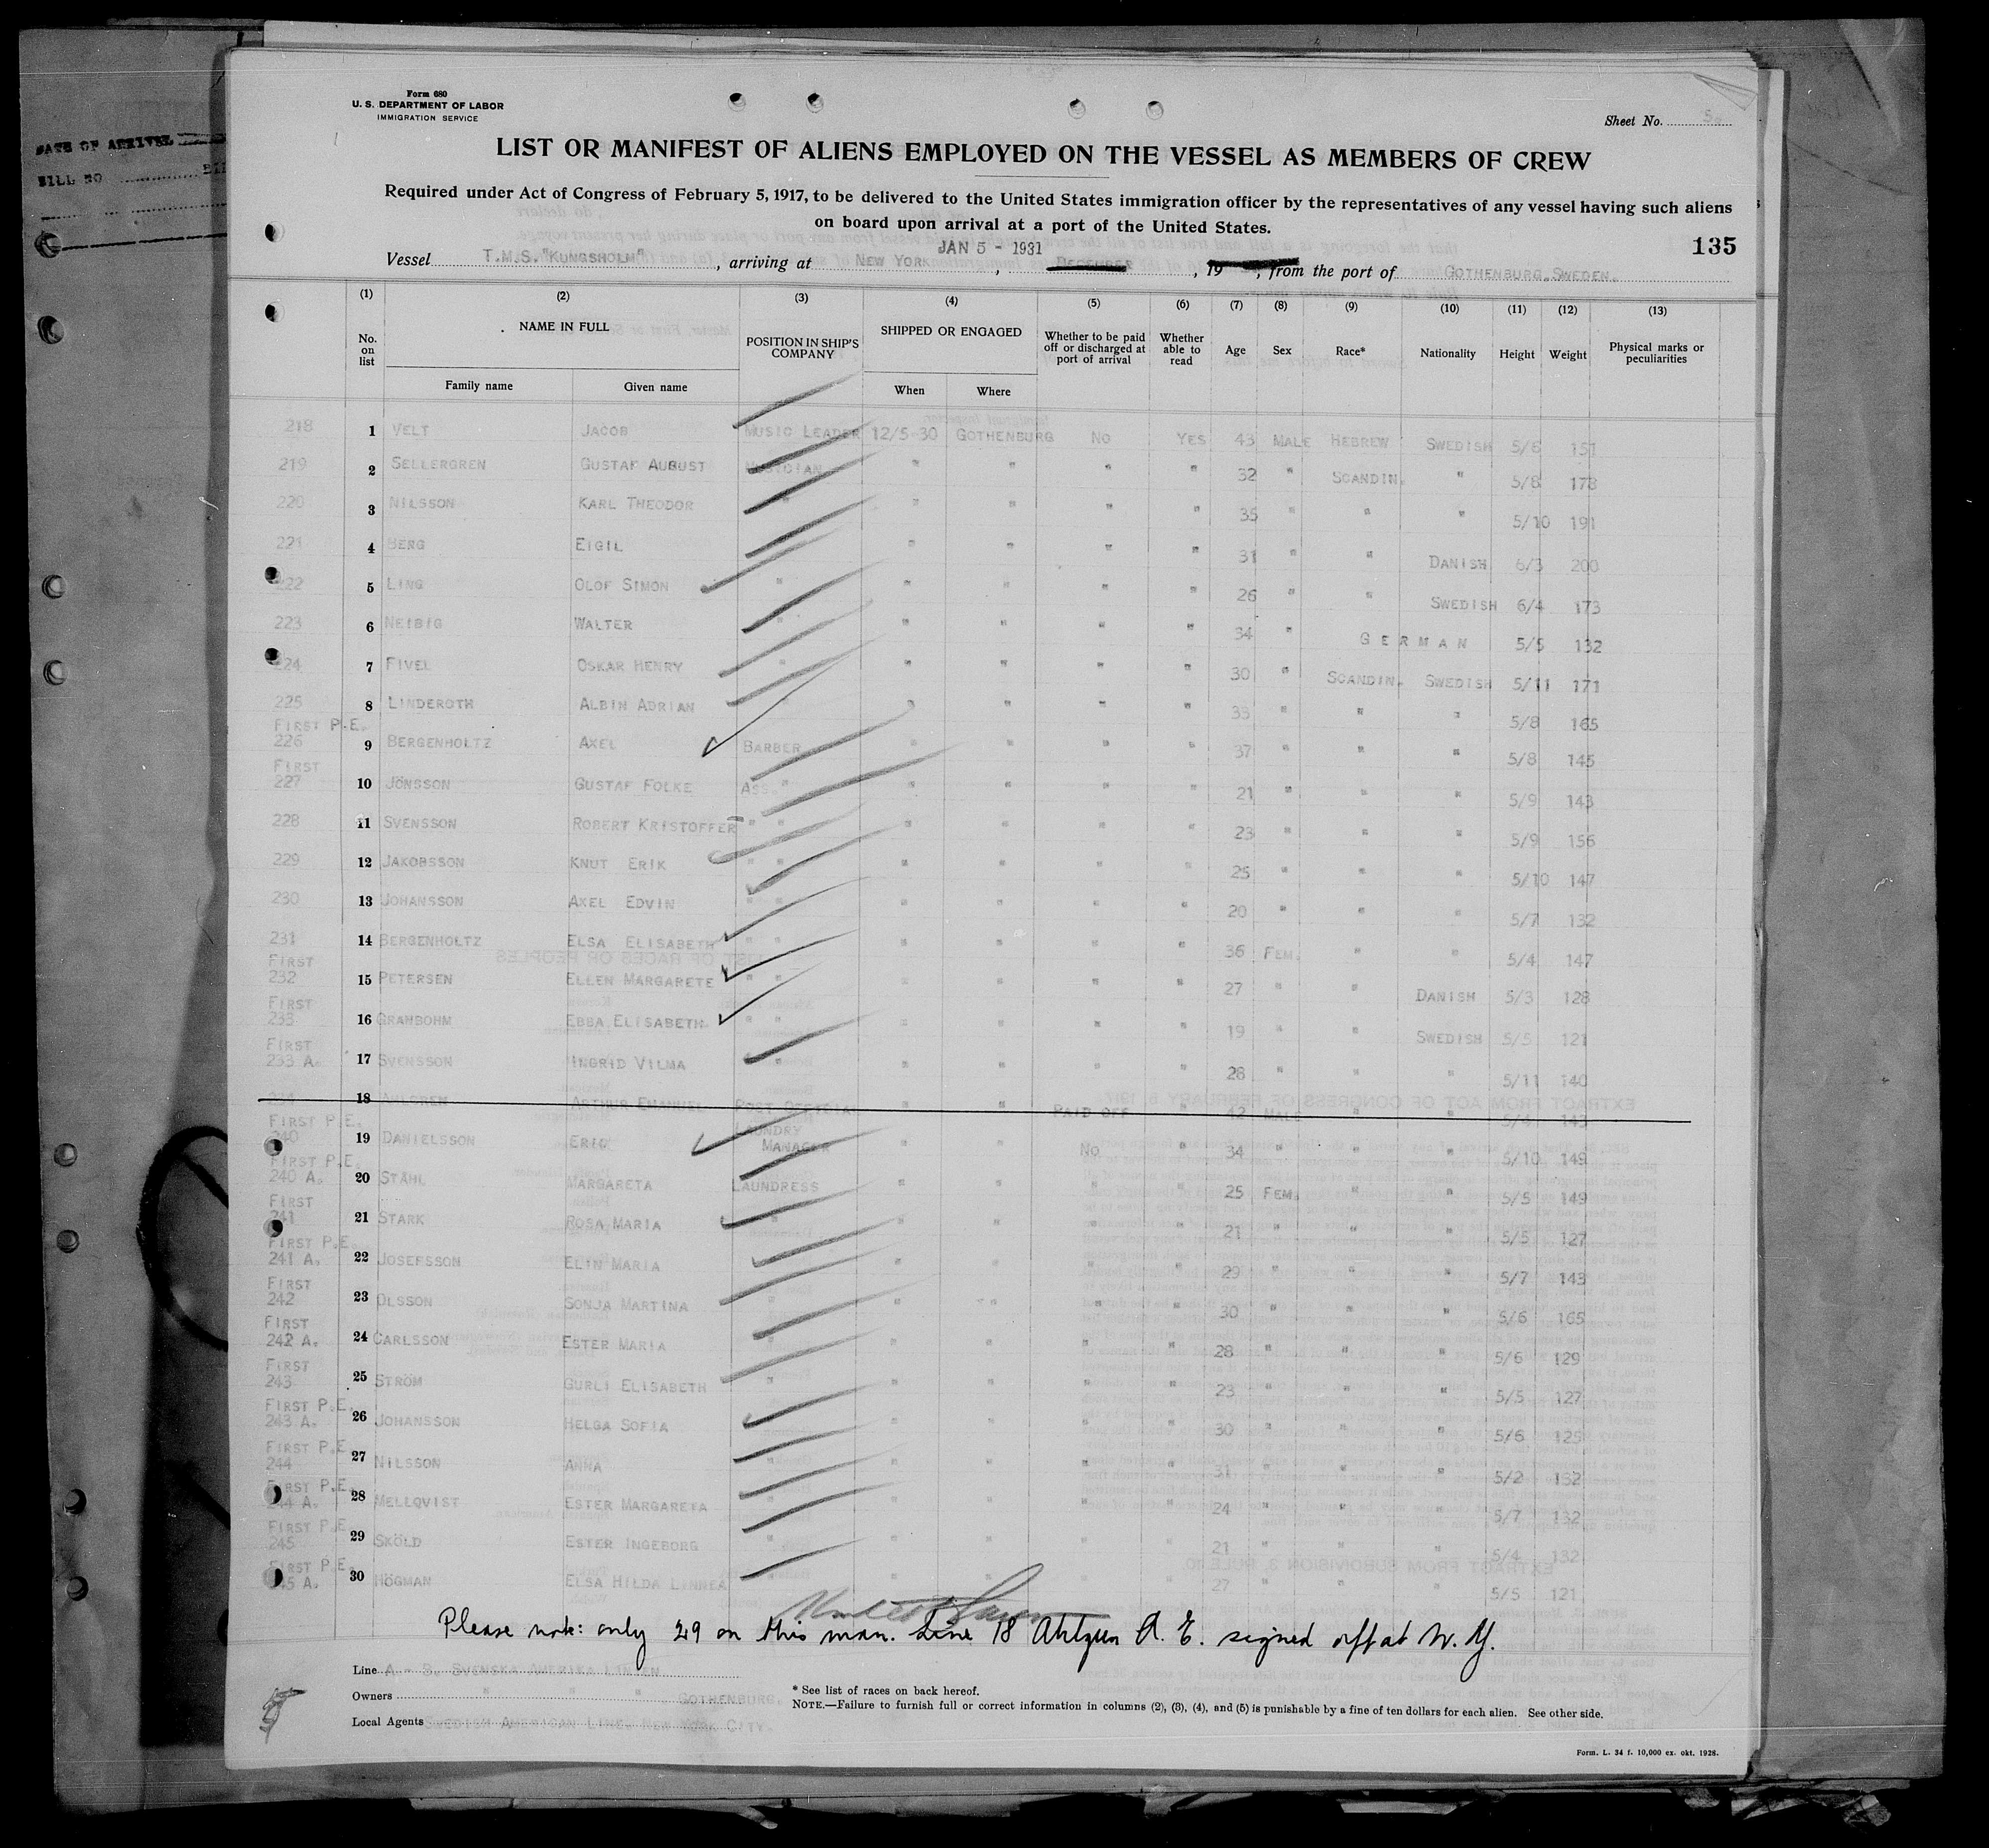 DATE OF ARRIVEL
BILL NO
Form 680
U. S. DEPARTMENT OF LABOR
IMMIGRATION SERVICE
Sheet No.
LIST OR MANIFEST OF ALIENS EMPLOYED ON THE VESSEL AS MEMBERS OF CREW
Required under Act of Congress of February 5, 1917, to be delivered to the United States immigration officer by the representatives of any vessel having such aliens
on board upon arrival at a port of the United States.
135
JAN 5 - 1931
Vessel T.M.S. "KUNGSHOLM", arriving at NEW YORK, DECEMBER, 19, from the port of GOTHENBURG. SWEDEN.
(1) (2) (3) (4) (5) (6) (7) (8) (9) (10) (11) (12) (13)
No. on list NAME IN FULL POSITION IN SHIP'S COMPANY SHIPPED OR ENGAGED Whether to be paid off or discharged at port of arrival Whether able to read Age Sex Race* Nationality Height Weight Physical marks or peculiarities
Family name Given name When Where
218 1 VELT JACOB MUSIC LEADER 12/5-30 GOTHENBURG NO YES 43 MALE HEBREW SWEDISH 5/6 151
219 2 SELLERGREN GUSTAF AUGUST MUSICIAN " " " " 32 " SCANDIN. " 5/8 173
220 3 NILSSON KARL THEODOR " " " " " 35 " " " 5/10 191
221 4 BERG EIGIL " " " " 31 " " DANISH 6/3 200
222 5 LING OLOF SIMON " " " " " 26 " " SWEDISH 6/4 173
223 6 NEIBIG WALTER " " " " 34 " GERMAN 5/5 132
224 7 FIVEL OSKAR HENRY " " " " " 30 " SCANDIN. SWEDISH 5/11 171
225 8 LINDEROTH ALBIN ADRIAN " " " " 33 " " " 5/8 165
FIRST P.E.
226 9 BERGENHOLTZ AXEL BARBER " " " " 37 " " " 5/8 145
FIRST
227 10 JÖNSSON GUSTAF FOLKE ASS. " " " " " 21 " " " 5/9 143
228 11 SVENSSON ROBERT KRISTOFFER " " " " " " 23 " " " 5/9 156
229 12 JAKOBSSON KNUT ERIK " " " " " " 25 " " " 5/10 147
230 13 JOHANSSON AXEL EDVIN " " " " " " 20 " " " 5/7 132
231 14 BERGENHOLTZ ELSA ELISABETH " " " " " " 36 FEM. " " 5/4 147
FIRST
232 15 PETERSEN ELLEN MARGARETE " " " " " " 27 " " DANISH 5/3 128
FIRST
233 16 GRAHBOHM EBBA ELISABETH " " " " " " 19 " " SWEDISH 5/5 121
FIRST
233 A. 17 SVENSSON INGRID VILMA " " " " " 28 " " " 5/11 140
18 AHLGREN ARTHUR EMANUEL POST OFFICIAL " " PAID OFF " 42 MALE " " 5/4 143
FIRST P.E.
240 19 DANIELSSON ERIC LAUNDRY MANAGER " " NO " 34 " " " 5/10 149
FIRST P.E.
240 A. 20 STÅHL MARGARETA LAUNDRESS " " " " 25 FEM. " " 5/5 149
FIRST
241 21 STARK ROSA MARIA " " " " " 21 " " " 5/5 127
FIRST P.E.
241 A. 22 JOSEFSSON ELIN MARIA " " " " 29 " " " 5/7 143
FIRST
242 23 OLSSON SONJA MARTINA " " " " " 30 " " " 5/6 165
FIRST
242 A. 24 CARLSSON ESTER MARIA " " " " " 28 " " " 5/6 129
FIRST
243 25 STRÖM GURLI ELISABETH " " " " " 23 " " " 5/5 127
FIRST P.E.
243 A. 26 JOHANSSON HELGA SOFIA " " " " " 30 " " " 5/6 125
FIRST P.E.
244 27 NILSSON ANNA " " " " " 31 " " " 5/2 132
FIRST P.E.
244 A. 28 MELLQVIST ESTER MARGARETA " " " " " 24 " " " 5/7 132
FIRST P.E.
245 29 SKÖLD ESTER INGEBORG " " " " " 21 " " " 5/4 132
FIRST P.E.
245 A. 30 HÖGMAN ELSA HILDA LINNEA " " " " 27 " " " 5/5 121
Please note: only 29 on this man. Line 18 Ahlgren A. E. signed off at N. Y.
Line A - B. SVENSKA AMERIKA LINIEN
Owners " " " GOTHENBURG.
Local Agents SWEDISH AMERICAN LINE. NEW YORK CITY.
* See list of races on back hereof.
NOTE.—Failure to furnish full or correct information in columns (2), (3), (4), and (5) is punishable by a fine of ten dollars for each alien. See other side.
Form. L. 34 f. 10,000 ex. okt. 1928.